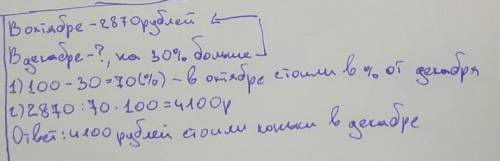 В октябре - 2870 рублей
В декабре - ?, на 30% больше
1) 100 - 30 = 70 (%) - в октябре стоили в % от декабря
2) 2870 : 70 · 100 = 4100 р
Ответ: 4100 рублей стоили коньки в декабре